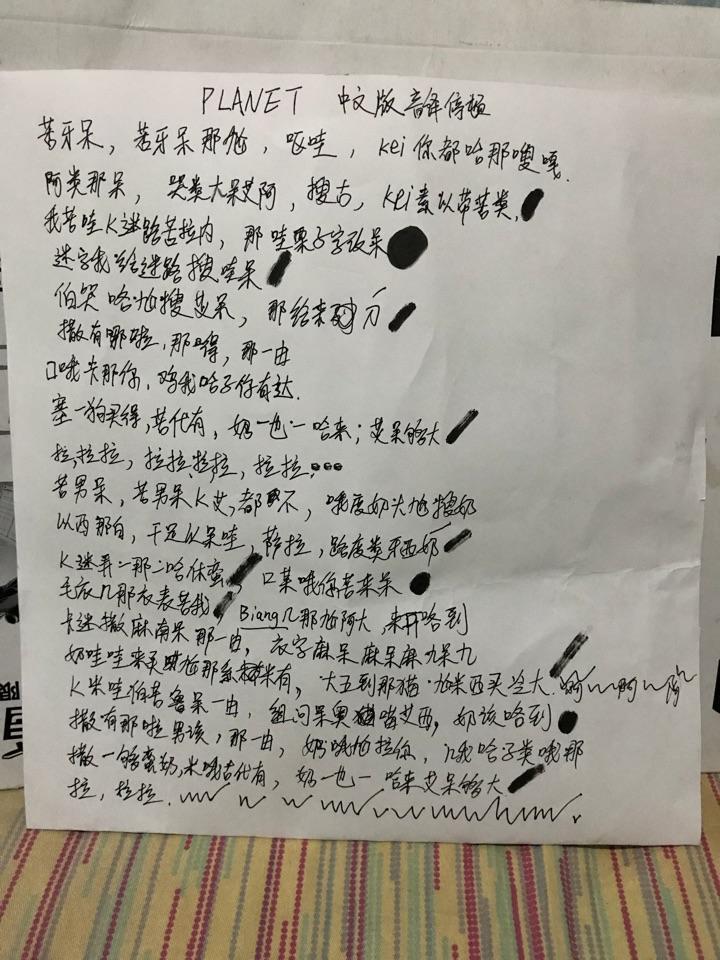 PLANET 中文版 音译停顿
苦牙呆, 苦牙呆那尬, 呕哇, kei你都哈那嗖嘎.
阿类那呆, 哭类大呆艾阿, 搜古, kei素以带苦类,
我苦哇K迷路苦拉内, 那哇栗子字改呆
迷字我给迷路搜哇呆
伯哭咯尬搜艾呆, 那给来刀
撒有哪啦, 那得, 那一由
口哦卡那你, 鸡我哈子你有达.
塞一狗买得, 苦代有, 奶一也一哈来; 艾呆够大
拉,拉拉, 拉拉,拉拉, 拉拉,
苦男呆, 苦男呆K艾, 都不, 哦度奶大尬搜奶
以西那白, 干足以呆哇, 萨拉, 路度类牙西奶
K迷弄一那二哈休蛮 口莱哦你苦来呆
毛衣几那衣表苦我, Biang几那尬阿大, 来哈到
卡迷撒麻南呆那一由, 衣字麻呆麻呆麻九呆九
奶哇哇来买尬那米有, 大五到那猫·尬米西买兰大. 啊 阿 阿
K米哇伯苦鲁呆一由, 组问呆奥嘴艾西, 奶该哈到
撒有那啦男该, 那一由, 奶哦尬拉你, 几我哈子类哦那
撒一够蛮奶,米哦古代有, 奶一也一 哈来艾呆够大
拉, 拉拉.